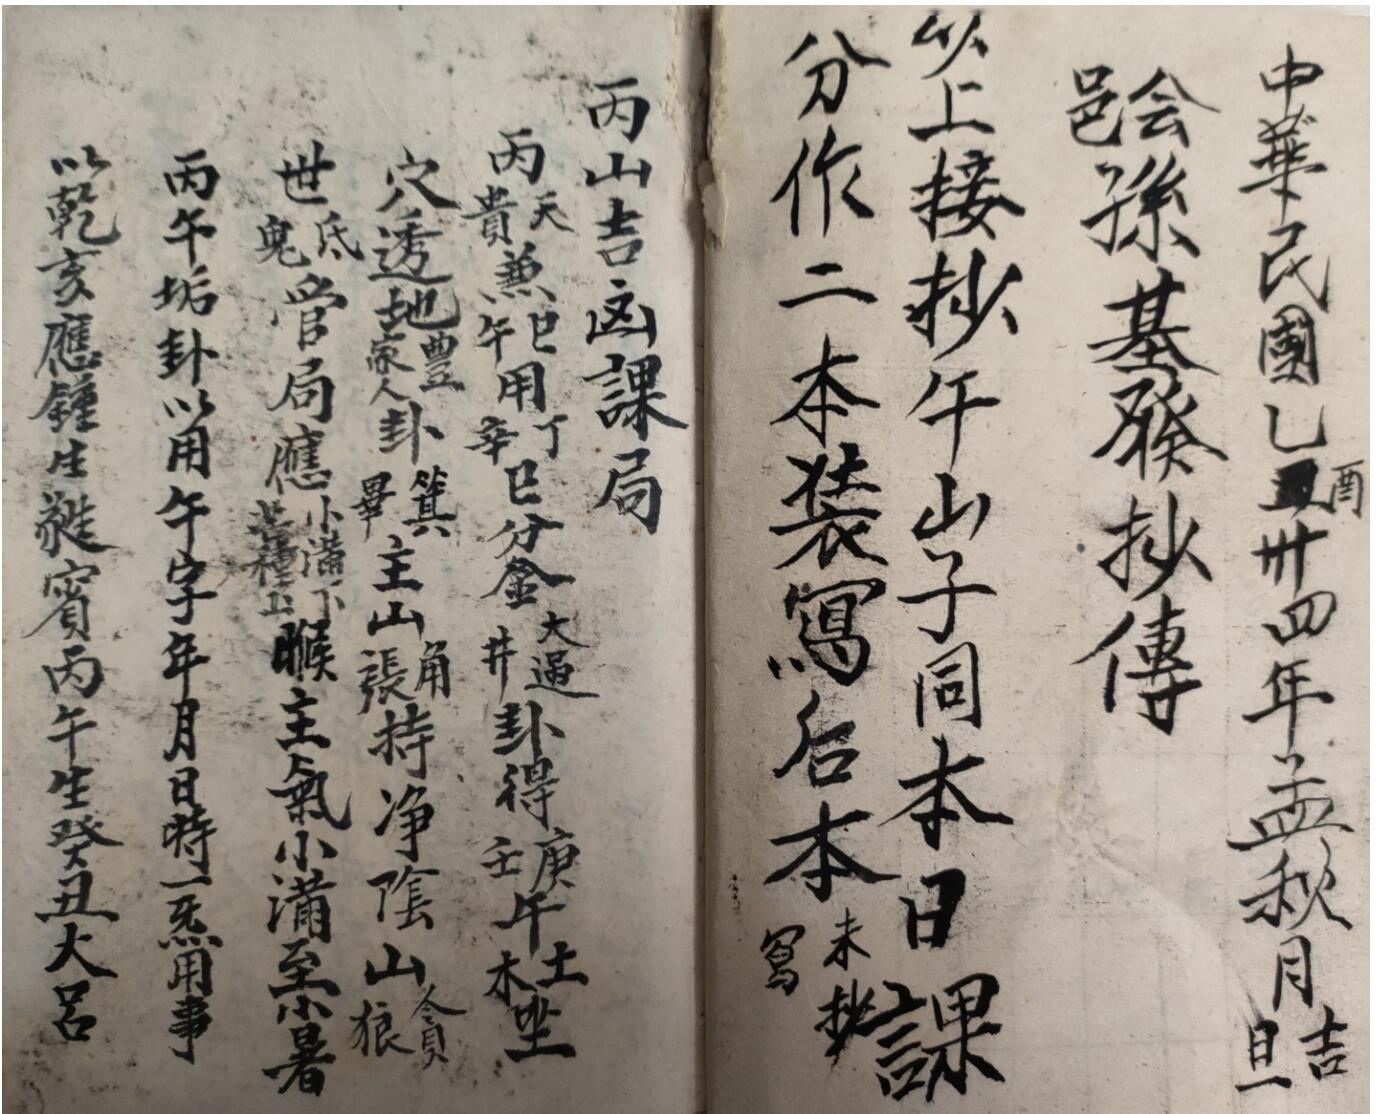 中華民國乙酉卅四年孟秋月吉旦
会邑孫基發抄傳
以上接抄午山子同本日課
分作二本装寫后本未抄寫
丙山吉凶課局
丙天貴兼巳午用丁辛巳分金大過井卦得庚壬午土木坐
穴透地豐家人卦箕畢主山角張持净陰山貪狼
世氐鬼管局應小滿下芒種上睺主氣小滿至小暑
丙午垢卦以用午字年月日時一炁用事
以乾亥應鐘生蕤賓丙午生癸丑大呂